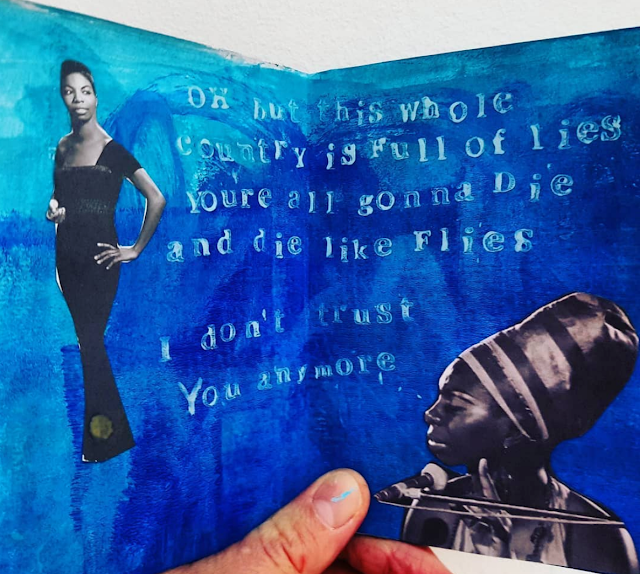 OH but this whole
country is Full of lies
Youre all gonna Die
and die like Flies
I don't trust
You anymore